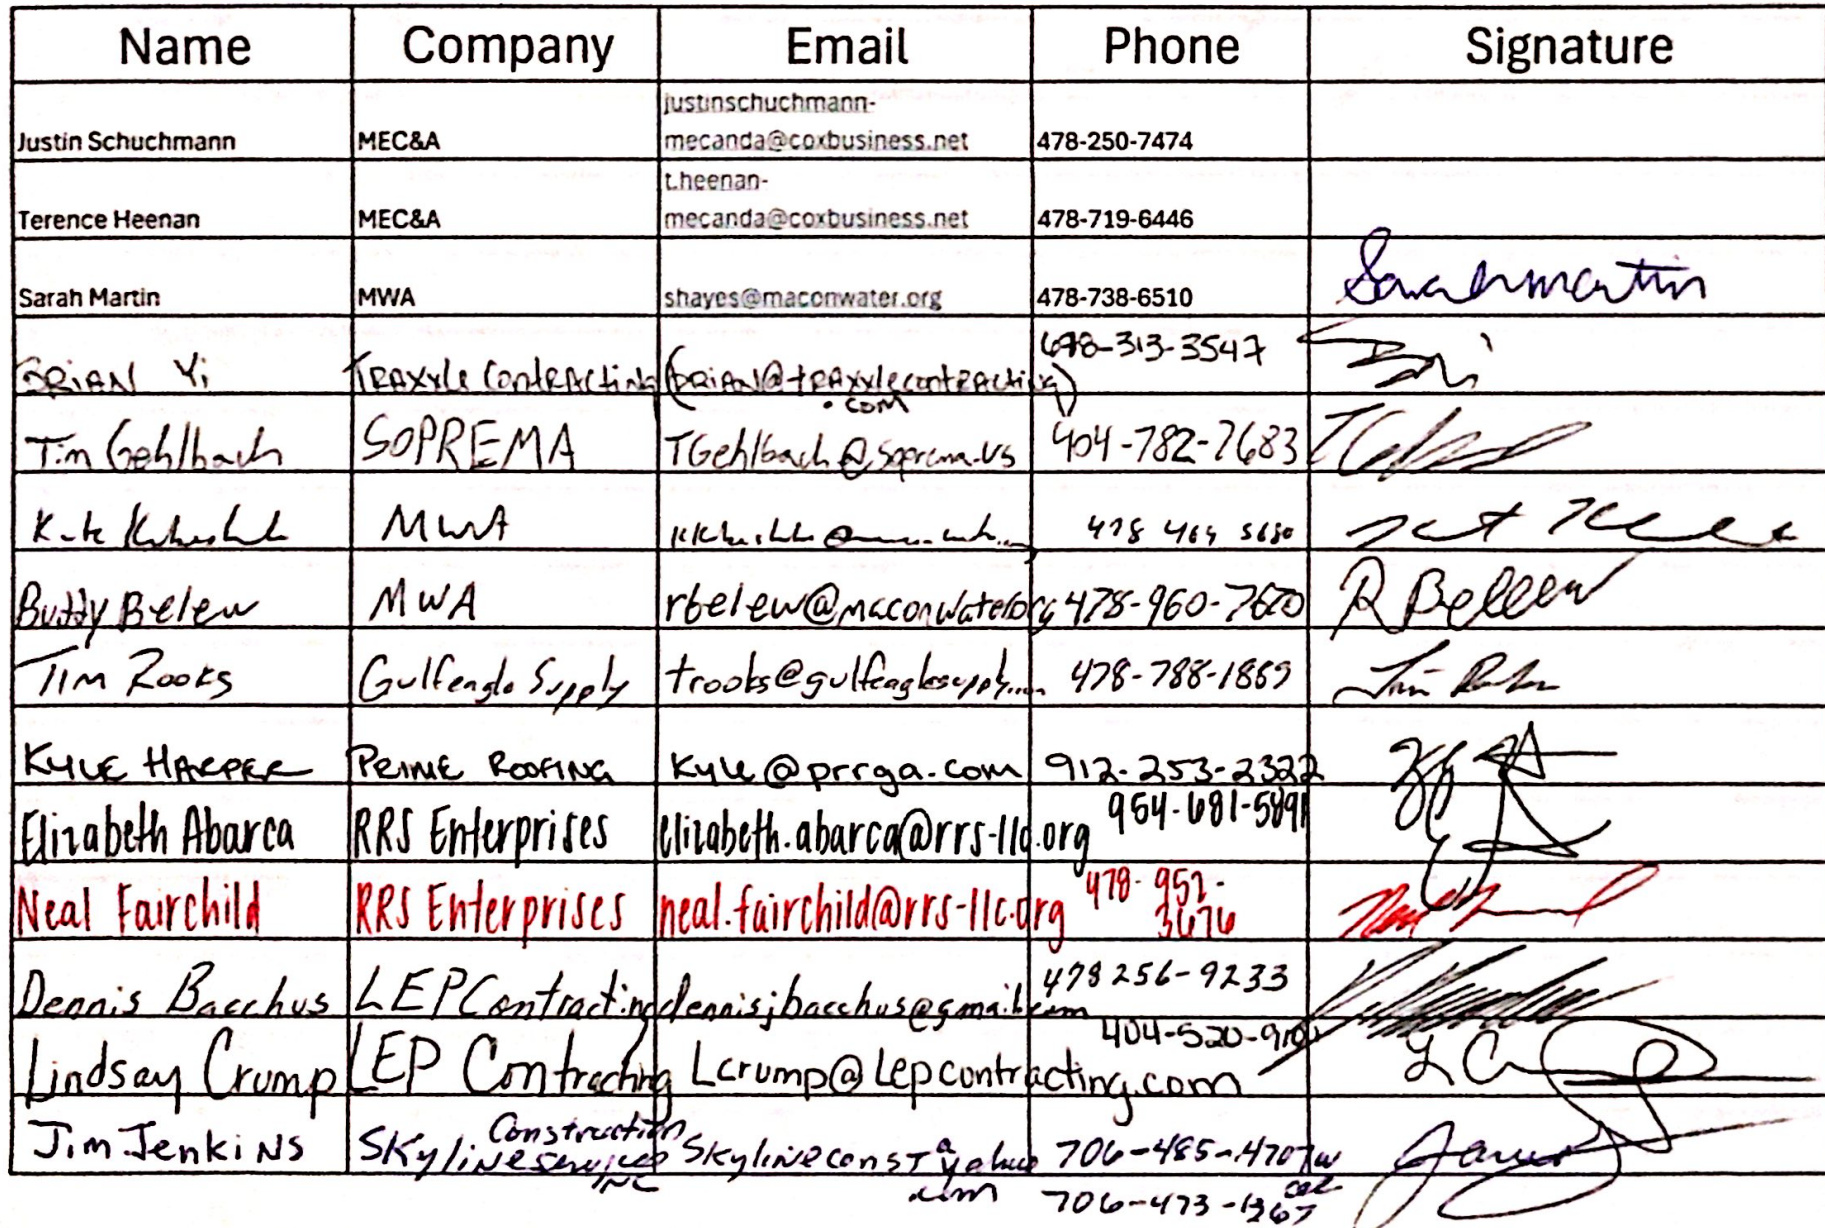 Name Company Email Phone Signature
justinschuchmann-
Justin Schuchmann MEC&A mecanda@coxbusiness.net 478-250-7474
t.heenan-
Terence Heenan MEC&A mecanda@coxbusiness.net 478-719-6446
Sarah Martin MWA shayes@maconwater.org 478-738-6510 Sarah Martin
BRIAN Yi TRAXXLE CONTRACTING (BRIAN@tRAXXlecontRActing) 678-313-3547
.com
Tim Gehlbach SOPREMA TGehlbach@soprema.us 404-782-7683
MWA
Buddy Belew MWA rbelew@maconwater.org 478-960-7670 R Belew
Tim Rooks Gulfeagle Supply trooks@gulfeaglesupply 478-788-1869 Tim
KYLE HARPER PRIME ROOFING Kyle@prrga.com 912-253-2322
Elizabeth Abarca RRS Enterprises elizabeth.abarca@rrs-llc.org 954-681-5891
Neal Fairchild RRS Enterprises neal.fairchild@rrs-llc.org 478-952-
3676
Dennis Bacchus LEP Contracting dennisjbacchus@gmail.com 478 256-9233
Lindsay Crump LEP Contracting Lcrump@Lepcontracting.com 404-520-9100 LC
Construction
Jim Jenkins SKyline services Skylineconst a yahoo 706-485-4707 w
INC .com 706-473-1267 cel